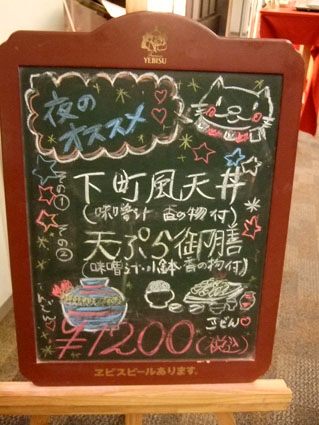 YEBISU
夜の
オススメ
下町風天丼
(味噌汁 香の物付)
天ぷら御膳
(味噌汁・小鉢・香の物付)
¥1200(税込)
ヱビスビールあります。